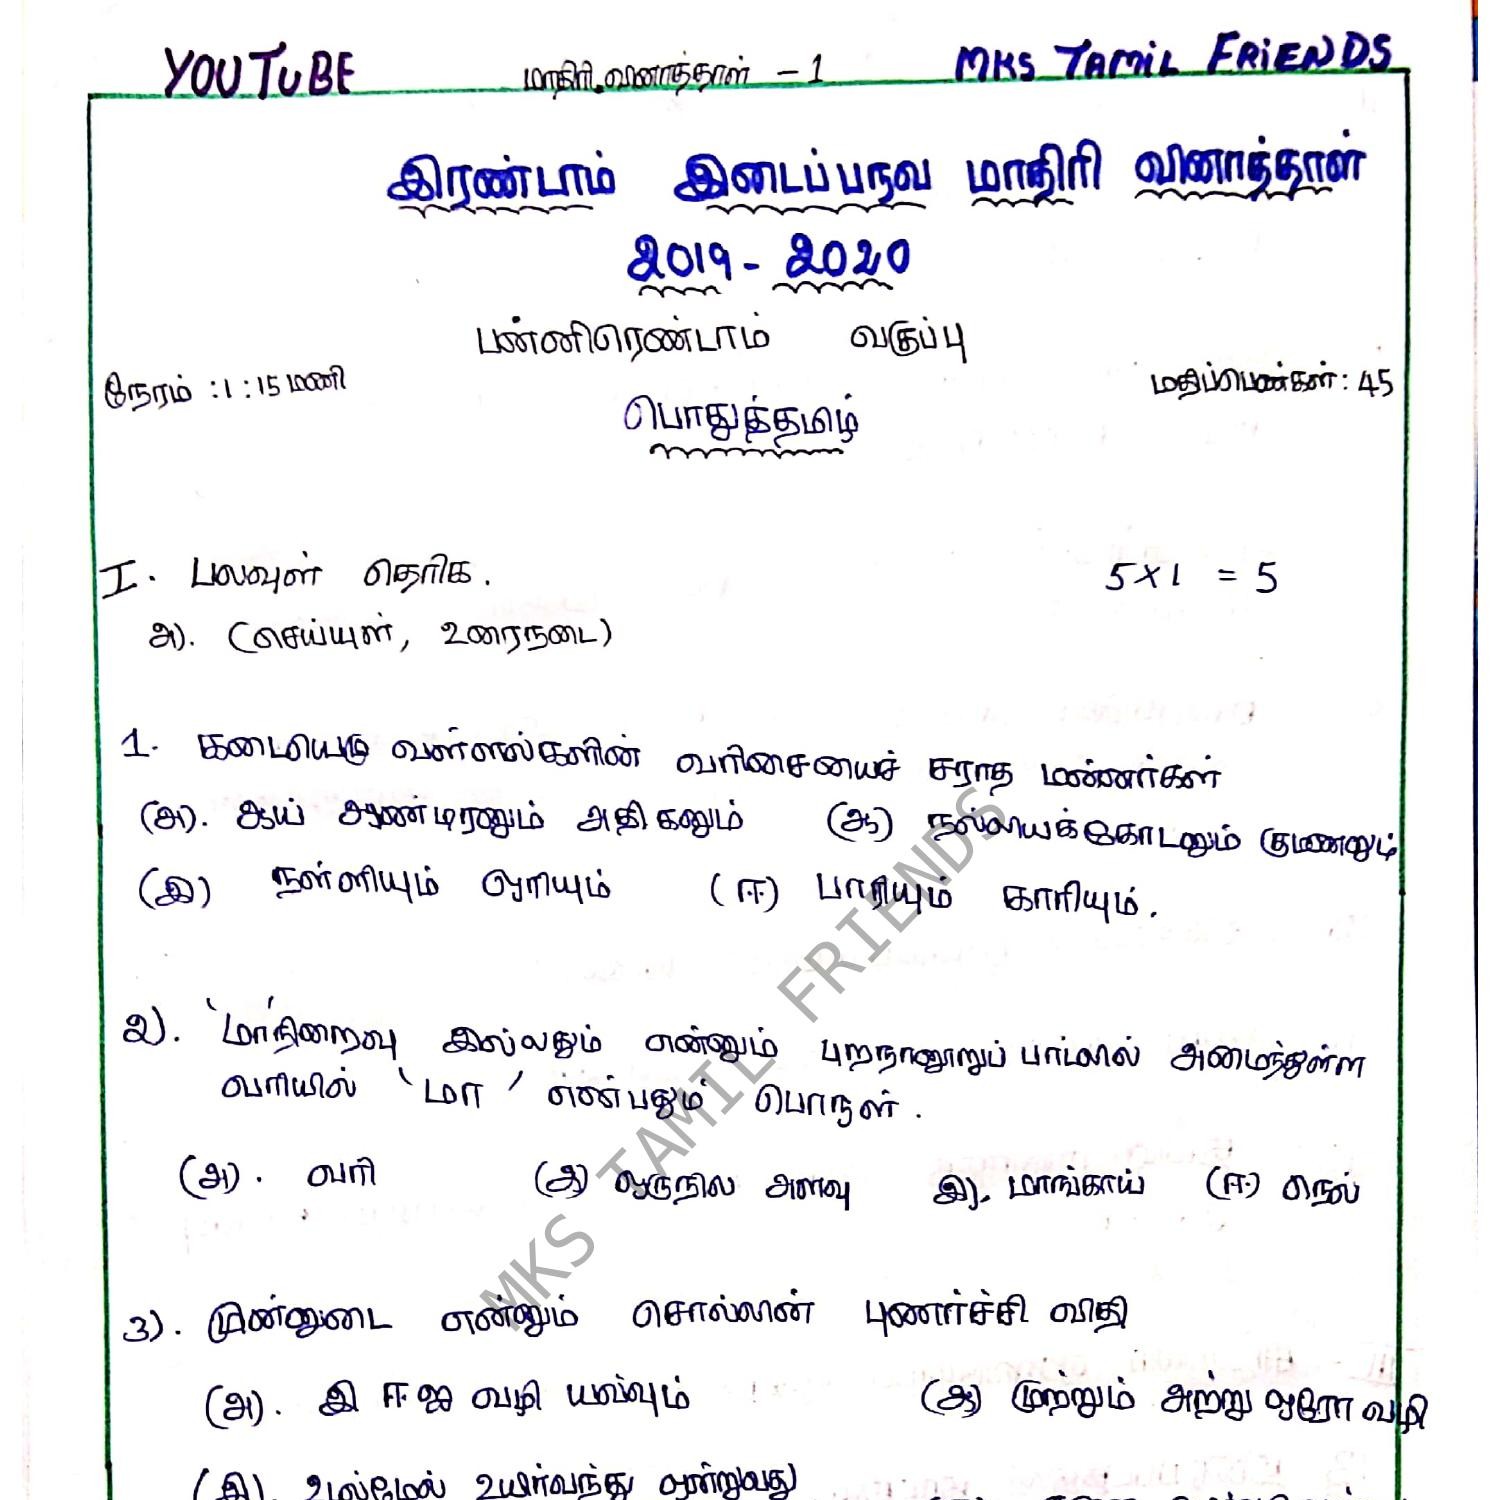 YOUTUBE மாதிரி வினாத்தாள் - 1 MKS TAMIL FRIENDS
இரண்டாம் இடைப்பருவ மாதிரி வினாத்தாள்
2019 - 2020
பன்னிரெண்டாம் வகுப்பு
நேரம் : 1 : 15 மணி மதிப்பெண்கள் : 45
பொதுத்தமிழ்
I. பலவுள் தெரிக. 5 X 1 = 5
அ). (செய்யுள், உரைநடை)
1. கடையெழு வள்ளல்களின் வரிசையைச் சாராத மன்னர்கள்
(அ). ஆய் ஆண்டிரனும் அதிகனும் (ஆ) நல்லியக்கோடனும் குமணனும்
(இ) நள்ளியும் ஓரியும் (ஈ) பாரியும் காரியும்.
2). 'மா'நிறைவு இல்லதும் என்னும் புறநானூறுப் பாடலில் அமைந்துள்ள
வரியில் 'மா' என்பதும் பொருள்.
(அ). வரி (ஆ) ஒருநில அளவு இ). மாங்காய் (ஈ) நெல்
3). முன்னுடை என்னும் சொல்லின் புணர்ச்சி விதி
(அ). இ ஈ ஐ வழி யவ்வும் (ஆ) முற்றும் அற்று ஓரோ வழி
(இ). உடல்மேல் உயிர்வந்து ஒன்றுவது
MKS TAMIL FRIENDS